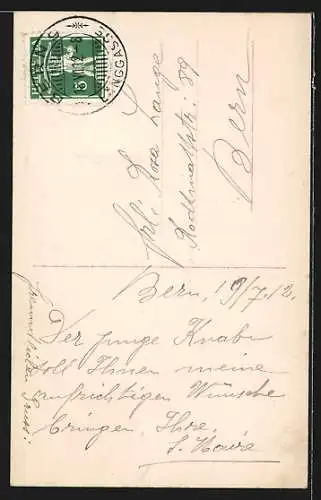 BERN
LÄNGGASSE
HELVETIA
Frl. Rosa Lange
Rodtmattstr: 89
Bern
Bern, 19/7.12.
Der junge Knabe
soll Ihnen meine
aufrichtigen Wünsche
bringen Ihre
Freundlichen Gruss!